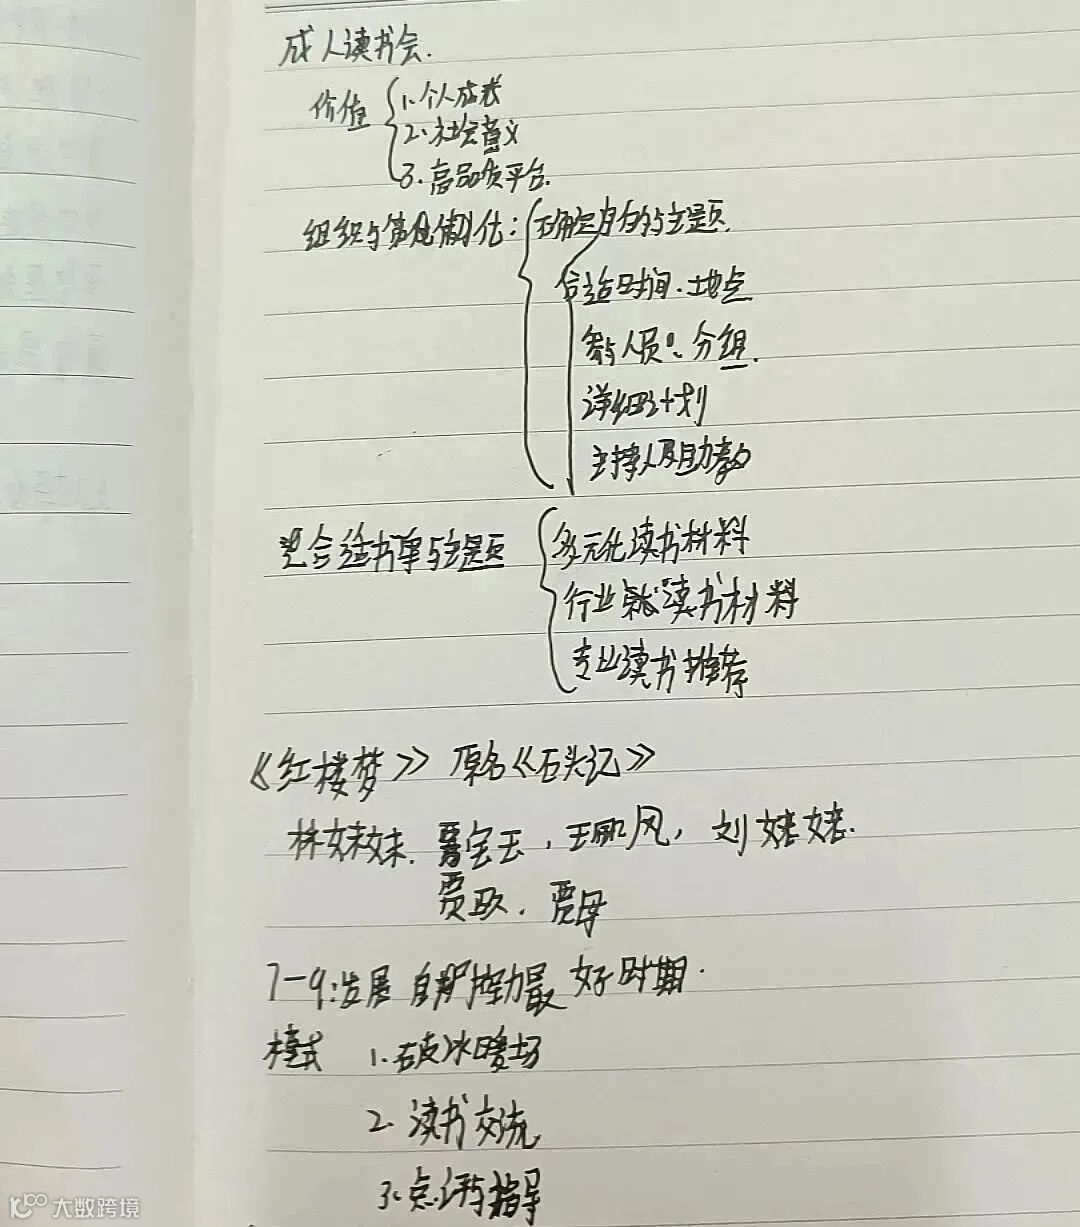 成人读书会.
价值 1.个人成长
2.社会意义
3.高品质平台.
组织与策划: 确定目的与主题.
合适时间.地点
参与人员、分组.
详细计划
主持人及助教
合适书单与主题 多元化读书材料
行业读书材料
专业读书推荐
《红楼梦》原名《石头记》
林妹妹.贾宝玉,王熙凤,刘姥姥.
贾政.贾母
7-9:发展自控力最好时期.
模式 1.破冰暖场
2.读书交流
3.点评与指导
大数跨境